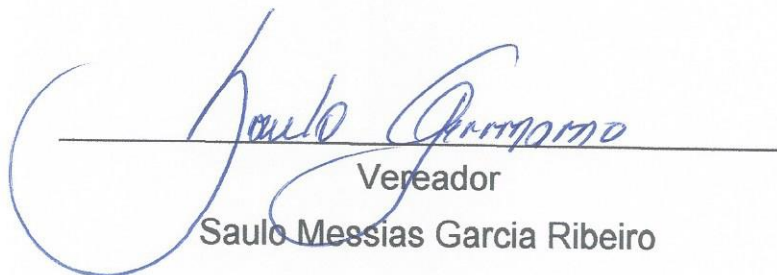 Saulo Germano
Vereador
Saulo Messias Garcia Ribeiro